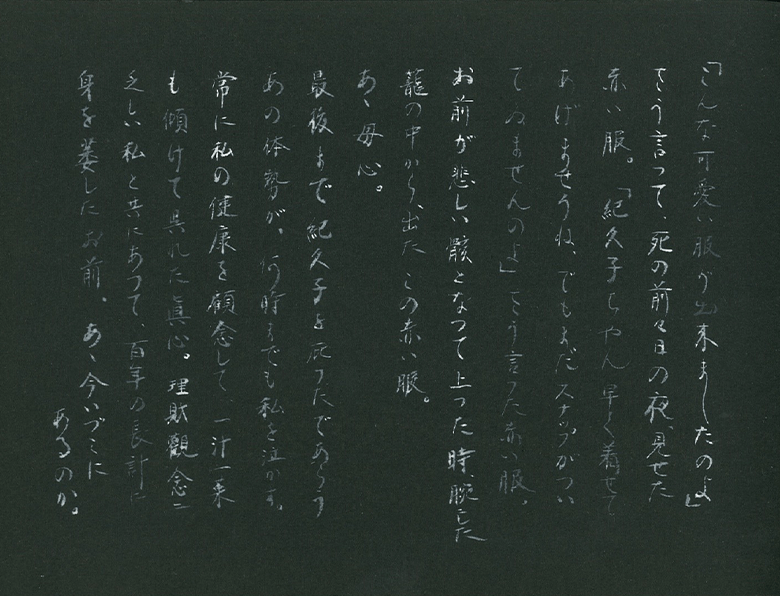 「こんな可愛い服が出来ましたのよ」
さう言つて、死の前々日の夜、見せた
赤い服。「紀久子ちやん早く着せて
あげませうね、でもまだスナツプがつい
てゐませんのよ」さう言つた赤い服。
お前が悲しい骸となつて上つた時腕にした
籠の中から、出た この赤い服。
あゝ母心。
最後まで紀久子を庇つたであらう
あの体勢が、何時までも私を泣かす。
常に私の健康を顧念して、一汁一菜
も傾けて呉れた眞心。理財觀念ニ
乏しい私と共にあつて、百年の長計に
身を萎したお前。あゝ今いづこに
あるのか。